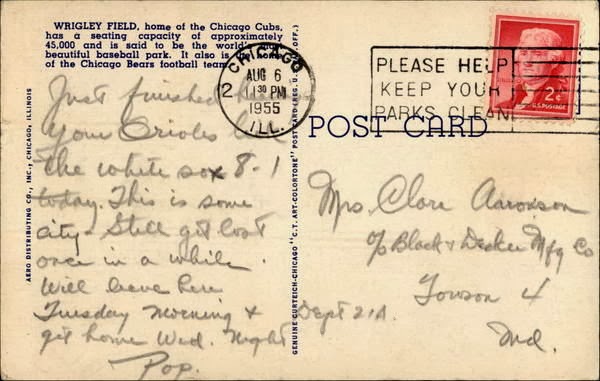 WRIGLEY FIELD, home of the Chicago Cubs,
has a seating capacity of approximately
45,000 and is said to be the world's most
beautiful baseball park. It also is the home
of the Chicago Bears football team.
CHICAGO
2
AUG 6
11 30 PM
1955
ILL.
PLEASE HELP
KEEP YOUR
PARKS CLEAN
2¢
U.S. POSTAGE
POST CARD
Just finished
Your Orioles
the white sox 8-1
today. This is some
city - Still get lost
once in a while.
Will leave here
Tuesday Morning &
get home Wed. Night
Pop.
Mrs. Clare Aaronson
c/o Black & Decker Mfg Co
Towson 4
Md.
Dept 21A.
AERO DISTRIBUTING CO., INC., CHICAGO, ILLINOIS
GENUINE CURTEICH-CHICAGO "C.T. ART-COLORTONE" POST CARD (REG. U.S. PAT. OFF.)